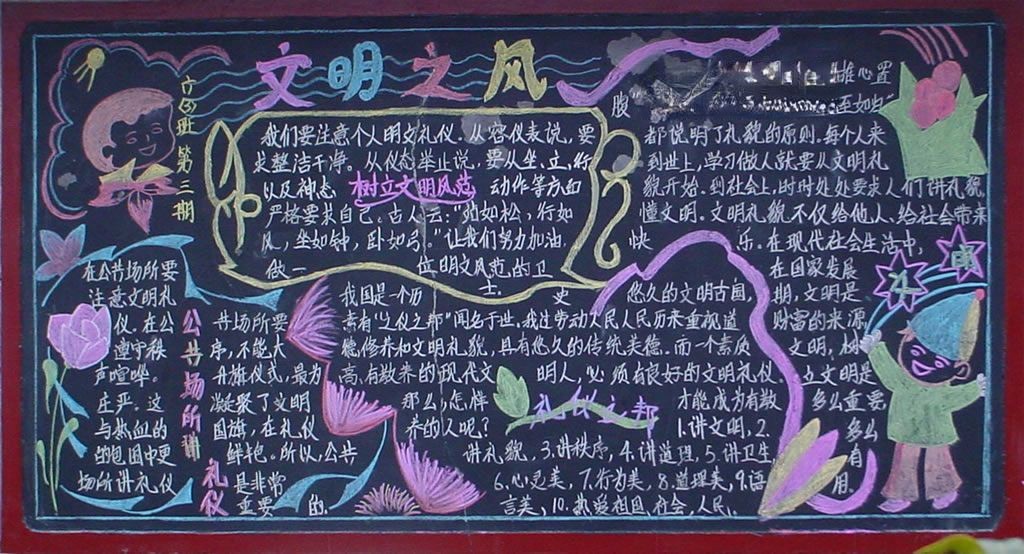 文明之风
第三期
我们要注意个人明文礼仪。从容仪表说，要
求整洁干净。从仪态举止说，要从坐、立、行
以及神态、动作等方面
树立文明风范
严格要求自己。古人云：“站如松，行如
风，坐如钟，卧如弓。”让我们努力加油，
做一位明文风范的卫
士。
推心置
腹 至如归”
都说明了礼貌的原则。每个人来
到世上，学习做人就要从文明礼
貌开始。到社会上，时时处处要求人们讲礼貌，
懂文明。文明礼貌不仅给他人、给社会带来
快乐。在现代社会生活中，
在国家发展
期，文明是
财富的来源，
文明，树
立文明是
多么重要
多么
有
用。
公共场所讲礼仪
在公共场所要
注意文明礼
仪。在公共场所要
遵守秩序，不能大
声喧哗。升旗仪式，最为
庄严。这凝聚了文明
与热血的国旗，在礼仪
的包围中更鲜艳。所以，公共
场所讲礼仪是非常
重要的。
礼仪之邦
我国是一个历史悠久的文明古国，
素有“礼仪之邦”闻名于世。我过劳动人民人民历来重视道
德修养和文明礼貌，具有悠久的传统美德。而一个素质
高、有教养的现代文明人，必须有良好的文明礼仪。
那么，怎样才能成为有教
养的人呢？1.讲文明，2.
讲礼貌，3.讲秩序，4.讲道理，5.讲卫生
6.心灵美，7.行为美，8.道理美，9.语
言美，10.热爱祖国，社会，人民。